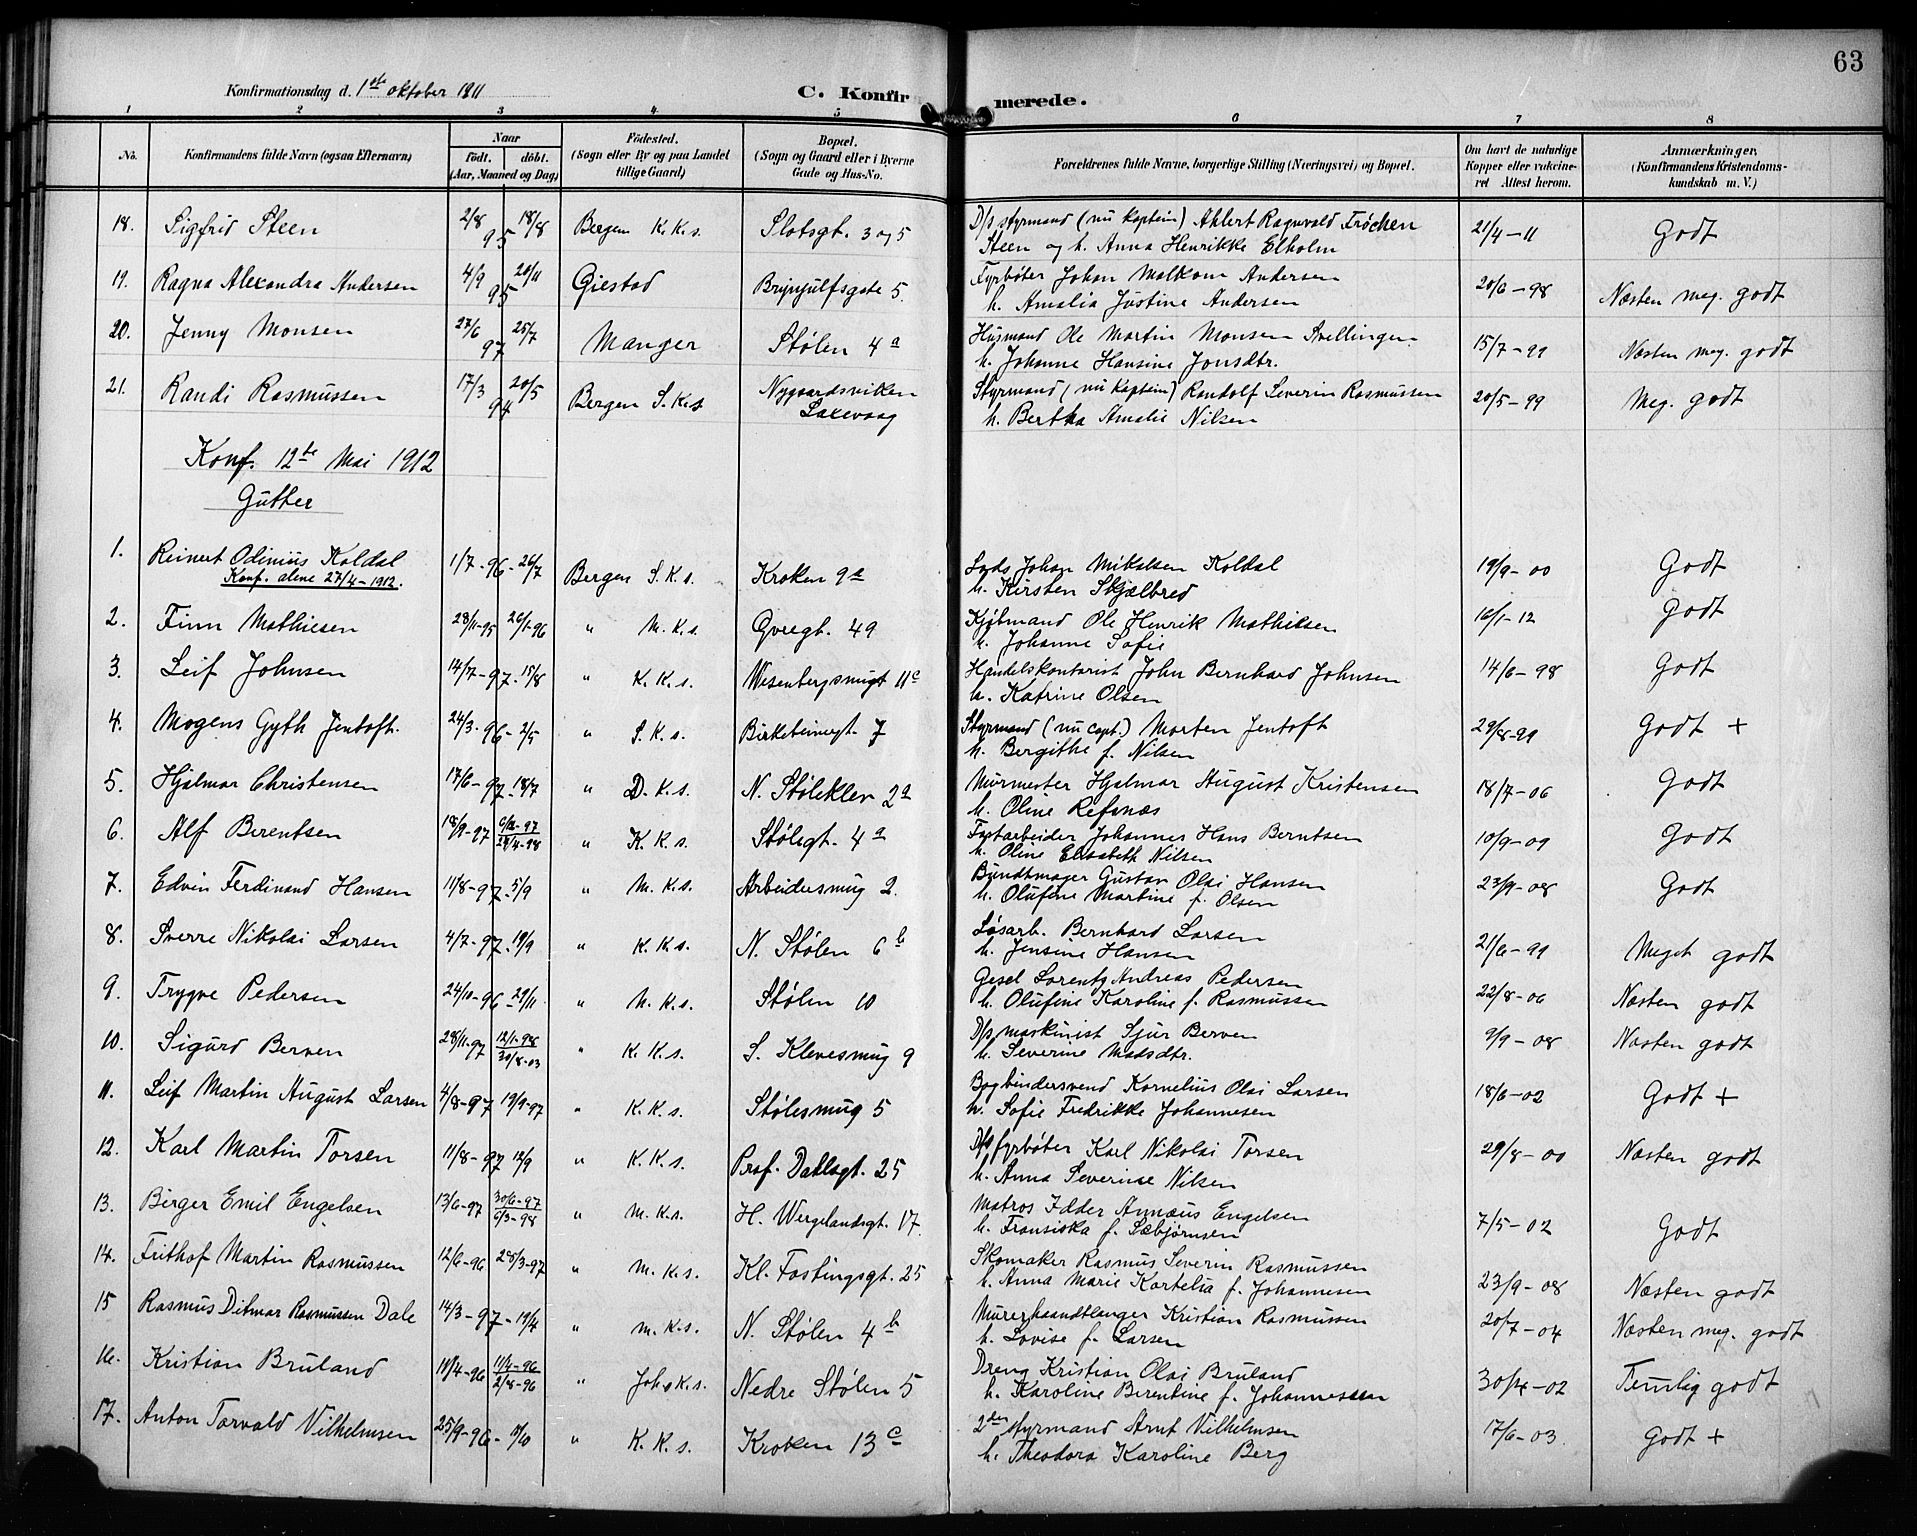 63
Konfirmationsdag d. 1ste oktober 1911
C. Konfirmerede.
1 2 3 4 5 6 7 8
No. Konfirmandens fulde Navn (ogsaa Efternavn) Naar födt. döbt. (Aar, Maaned og Dag) Födested. (Sogn eller By og paa Landet tillige Gaard.) Bopæl. (Sogn og Gaard eller i Byerne Gade og Hus-No. Forældrenes fulde Navne, borgerlige Stilling (Næringsvei) og Bopæl. Om havt de naturlige Kopper eller vakcineret Attest herom. Anmærkninger, (Konfirmandens Kristendomskundskab m. V.)
18. Sigfrid Steen 2/8 95 18/8 Bergen K.K.s. Slotsgt. 3 og 5 D/s styrmand (nu kaptein) Ahlert Ragnvald Frøchen 21/4-11 Godt
Steen og h. Anna Henrikke Elholm
19. Ragna Alexandra Andersen 4/9 95 20/11 Gjestad Brynjulfsgate 5. Fyrbøter Johan Malkom Andersen 20/6-98 Næsten meg. godt
h. Amalia Justine Andersen
20. Jenny Monsen 27/6 97 25/7 Manger Stølen 4a Husmand Ole Martin Monsen 15/7-99 Næsten meg. godt
h. Johanne Hansine Jonsdtr.
21. Randi Rasmussen 17/3 94 20/5 Bergen S.K.s. Nygaardsviken Laxevaag Styrmand (nu kaptein) Randolf Severin Rasmussen 20/5-99 Meg. godt
h. Bertha Amalie Nilsen
Konf. 12te Mai 1912
Gutter
1. Reinert Odinius Koldal 1/7-96-26/7 Bergen S.K.s. Kroken 9a Lods Johan Mikalsen Koldal 19/9-00 Godt
Konf. alene 27/4-1912. h. Kirsten Skjælbred
2. Finn Mathiesen 28/11-95 26/1-96 " M.K.s. Øvregt. 49 Kjøbmand Ole Henrik Mathiesen 16/1-12 Godt
h. Johanne Sofie
3. Leif Johnsen 14/7-97-15/8 " K.K.s. Wesenbergsmugt 11c Handelskontorist John Bernhard Johnsen 14/6-98 Godt
h. Katrine Olsen
4. Mogens Gyth Jentoft. 24/3-96-2/5 " S.K.s. Birkebeinergt. 7 Styrmand (nu capt.) Morten Jentoft 29/8-99 Godt +
h. Bergithe f. Nilsen
5. Hjalmar Christensen 17/6-97-18/7 " D.K.s. N. Støleklev 2a Murmester Hjalmar August Kristensen 18/7-06 Godt
h. Oline Refsnæs
6. Alf Berentsen 18/9-97 " K.K.s. Stølegt. 4a Johannes Hans Berntsen 10/9-09 Godt
h. Oline Elisabeth Nilsen
7. Edvin Ferdinand Hansen 11/8-97-5/9 " M.K.s. Arbeidersmug 2. Bundtmager Gustav Olai Hansen 23/9-08 Godt
h. Olufine Martine f. Olsen
8. Sverre Nikolai Larsen 4/7-97-19/9 " K.K.s. N. Stølen 6b Løsarb. Bernhard Larsen 21/6-99 Meget godt
h. Jensine Hansen
9. Trygve Pedersen 24/10-96-29/11 " N.K.s. Stølen 10 Gesel Lorentz Andreas Pedersen 22/8-06 Næsten godt
h. Olufine Karoline f. Rasmussen
10. Sigurd Berven 28/11-97 12/1-98 30/8-03 " K.K.s. S. Klevesmug 9 D/s maskinist Sjur Berven 9/9-08 Næsten godt
h. Severine Madsdtr.
11. Leif Martin August Larsen 4/8-97 19/9-97 " K.K.s. Stølesmug 5 Bogbindersvend Kornelius Olai Larsen 18/6-02 Godt +
h. Sofie Fredrikke Johannesen
12. Karl Martin Torsen 11/8-97 12/9 " K.K.s. Prof. Dahlsgt. 25 D/s fyrbøter Karl Nikolai Torsen 29/8-00 Næsten godt
h. Anna Severine Nilsen
13. Birger Emil Engelsen 13/6-97 30/6-97 6/3-98 " M.K.s. H. Wergelandsgt. 17. Matros Annæus Engelsen 7/5-02 Godt
h. Fransiska f. Sæbjørnsen
14. Frithof Martin Rasmussen 12/6-96 28/3-97 " M.K.s. Kl. Fostingsgt. 25 Skomaker Rasmus Severin Rasmussen 23/9-08 Næsten godt
h. Anna Marie Kartelia f. Johannesen
15 Rasmus Ditmar Rasmussen Dale 14/3-97-19/4 " M.K.s. N. Stølen 4b Murerhaandtlanger Kristian Rasmussen 20/7-04 Næsten meg. godt
h. Lovise f. Larsen
16. Kristian Bruland 11/4-96 2/8-96 " Joh.K.s. Nedre Stølen 5 Dreng Kristian Olai Bruland 30/4-02 Temlig godt
h. Karoline Berentine f. Johannessen
17. Anton Torvald Vilhelmsen 25/9-96 " K.K.s. Kroken 13c 2den styrmand Arnt Vilhelmsen 17/6-03 Godt +
h. Theodora Karoline Berg